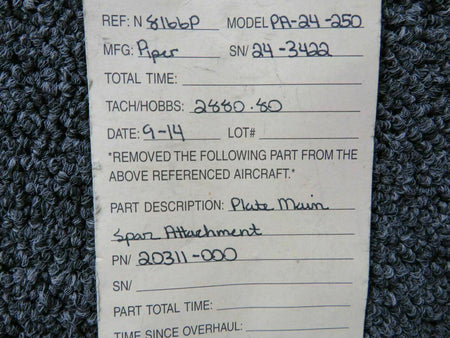 REF: N 8166P MODEL PA-24-250
MFG: Piper SN/ 24-3422
TOTAL TIME:
TACH/HOBBS: 2880.80
DATE: 9-14 LOT#
*REMOVED THE FOLLOWING PART FROM THE
ABOVE REFERENCED AIRCRAFT.*
PART DESCRIPTION: Plate Main
Spar Attachment
PN/ 20311-000
SN/
PART TOTAL TIME:
TIME SINCE OVERHAUL: